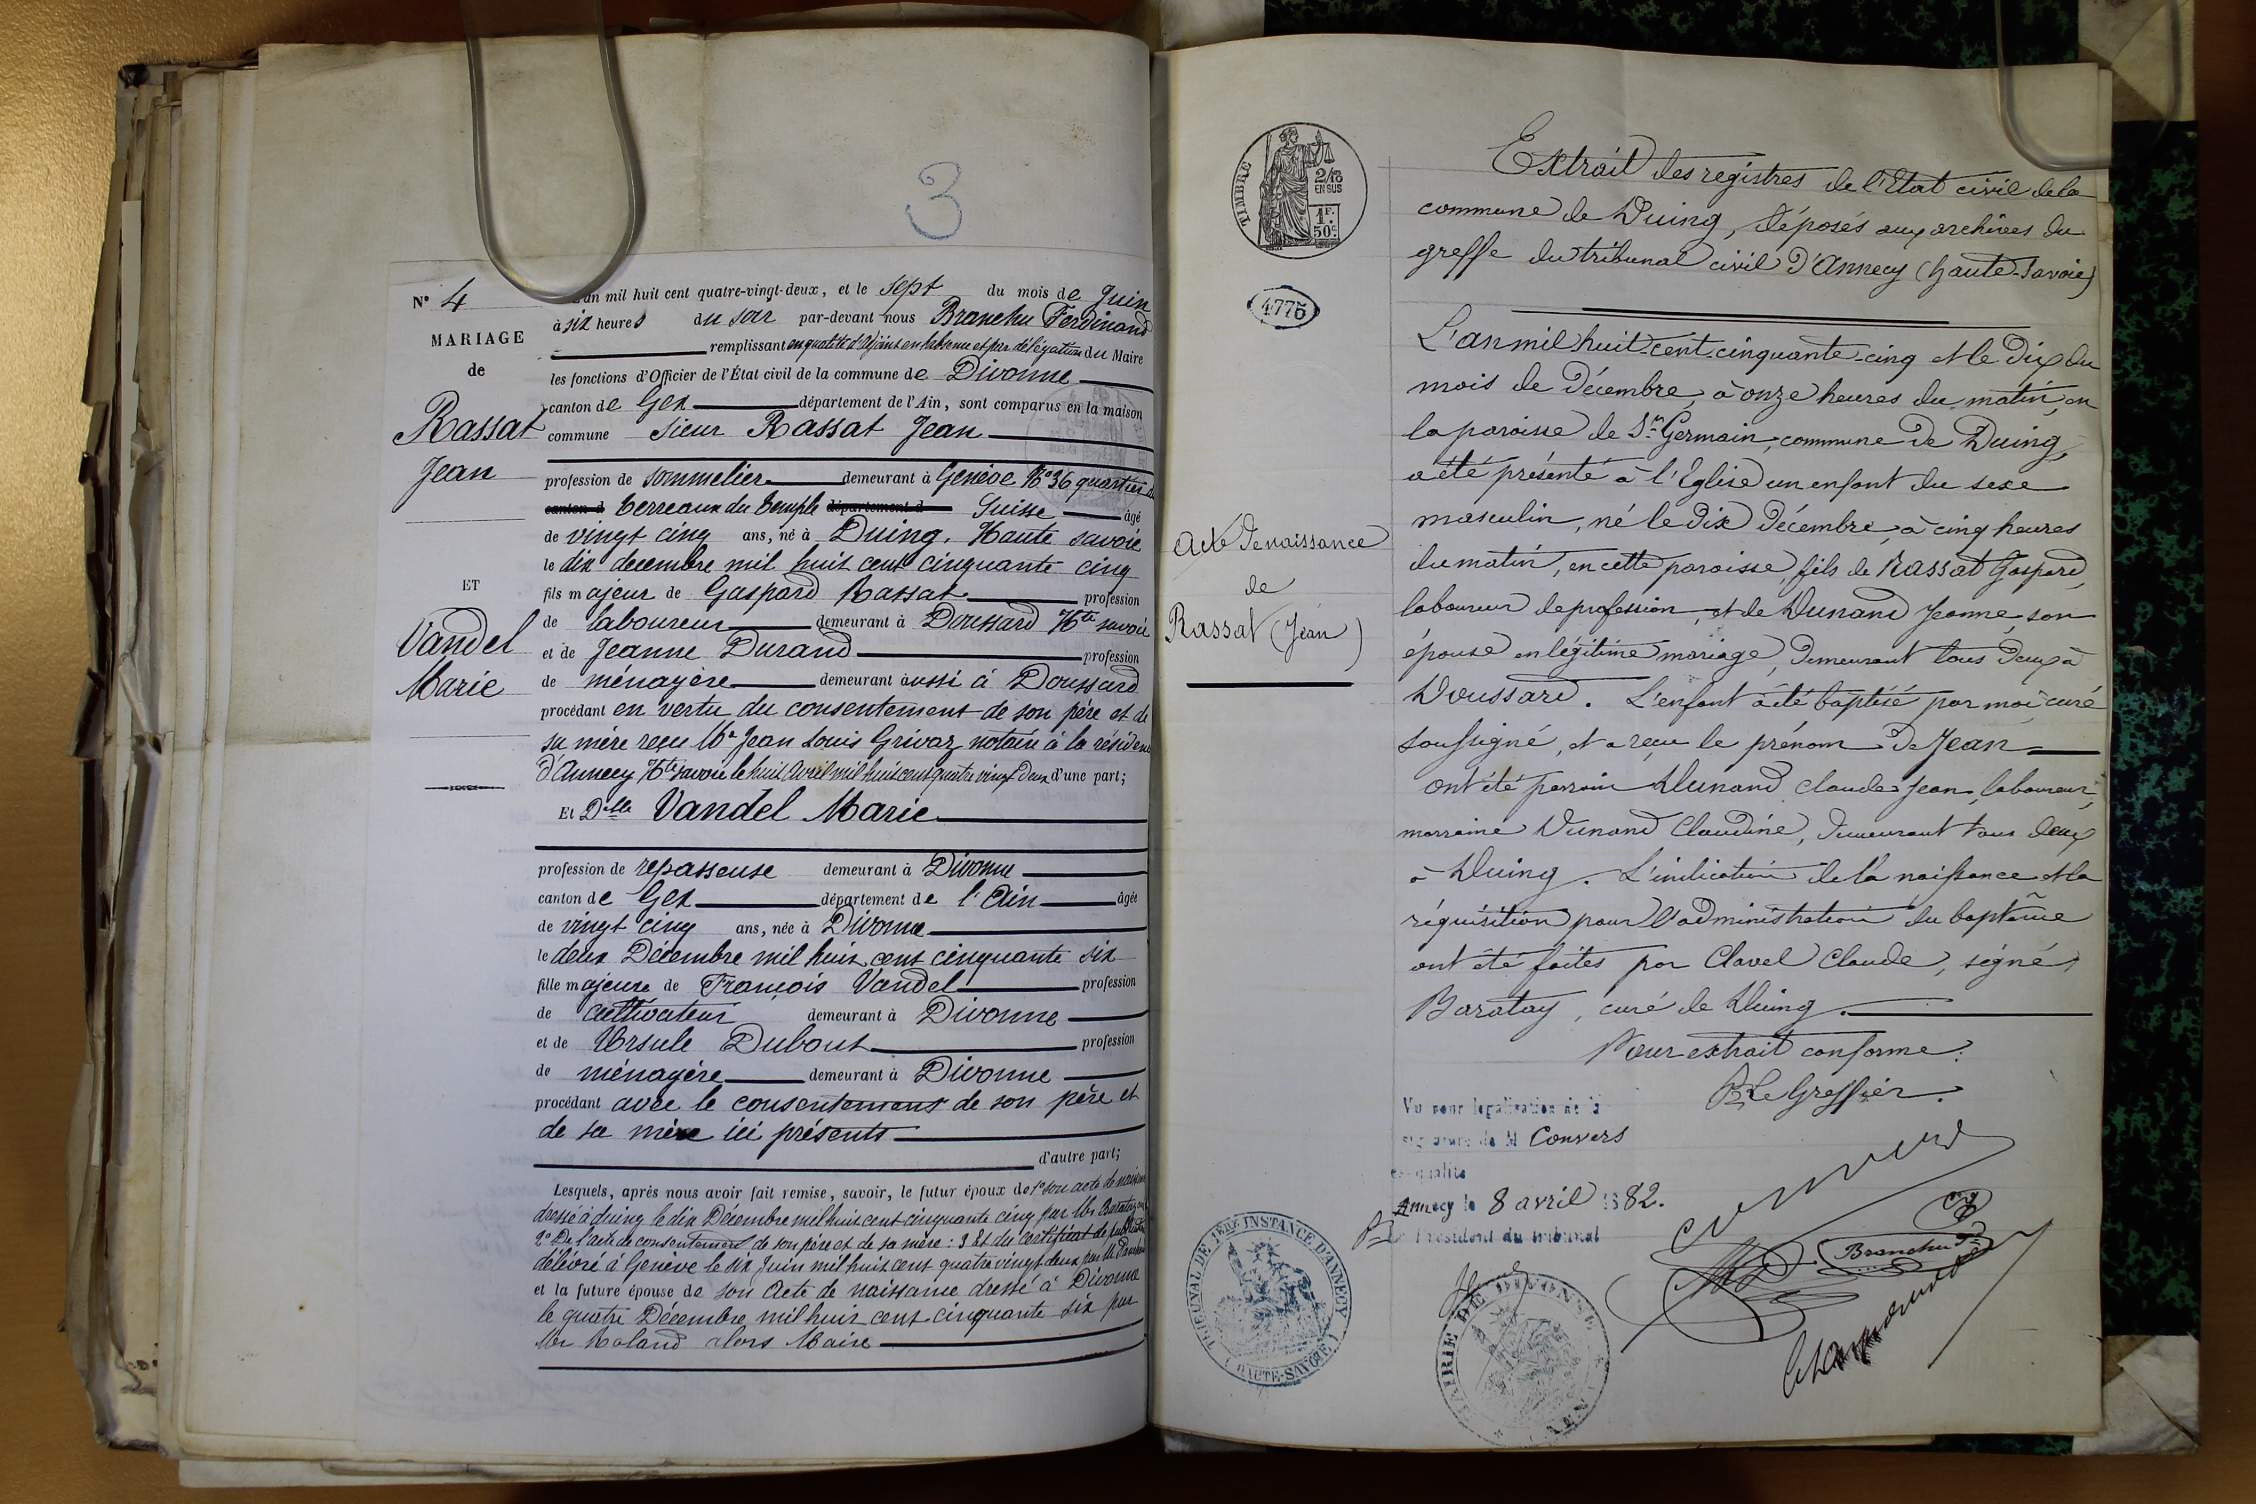 3
N° 4
MARIAGE
de
Rassat
Jean
ET
Vandel
Marie
L'an mil huit cent quatre-vingt-deux, et le sept du mois de Juin
à six heures du soir par-devant nous Branchu Ferdinand
remplissant en qualité d'Adjoint en labsence et par délégation du Maire
les fonctions d'Officier de l'État civil de la commune de Divonne
canton de Gex département de l'Ain, sont comparus en la maison
commune Sieur Rassat Jean
profession de sommelier demeurant à Genève N° 36 quartier
canton d terreaux du temple département d Suisse âgé
de vingt cinq ans, né à Duing. Haute savoie
le dix decembre mil huit cent cinquante cinq
fils majeur de Gaspard Rassat profession
de laboureur demeurant à Doussard Hte savoie
et de Jeanne Durand profession
de ménagère demeurant aussi à Doussard
procédant en vertu du consentement de son père et de
sa mère reçu Me Jean Louis Grivaz notaire à la résidence
d'Annecy Hte savoie le huit Avril mil huit cent quatre vingt deux d'une part;
Et Dlle Vandel Marie
profession de repasseuse demeurant à Divonne
canton de Gex département de l'Ain âgée
de vingt cinq ans, née à Divonne
le deux Décembre mil huit cent cinquante six
fille majeure de François Vandel profession
de cultivateur demeurant à Divonne
et de Ursule Dubout profession
de ménagère demeurant à Divonne
procédant avec le consentement de son père et
de sa mère ici présents
d'autre part;
Lesquels, après nous avoir fait remise, savoir, le futur époux de 1° son acte de naissance
dressé à duing le dix Décembre mil huit cent cinquante cinq par Mr Baratay
2° De l'acte de consentement de son père et de sa mère : 3 Et du certificat de publication
délivré à Genève le six Juin mil huit cent quatre vingt deux par M.
et la future épouse de son Acte de naissance dressé à Divonne
le quatre Décembre mil huit cent cinquante six par
Mr Roland alors Maire
TIMBRE
2/10
EN SUS
1F.
50c.
4775
Acte de naissance
de
Rassat (Jean)
Extrait des registres de l'Etat civil de la
commune de Duing, déposés aux archives du
greffe du tribunal civil d'Annecy (haute-Savoie)
L'an mil huit-cent cinquante-cinq et le dix du
mois de Décembre, à onze heures du matin, en
la paroisse de St Germain, commune de Duing,
a été présenté à l'Eglise un enfant du sexe
masculin, né le dix Décembre, à cinq heures
du matin, en cette paroisse, fils de Rassat Gaspard,
laboureur de profession, et de Dunand Jeanne, son
épouse en légitime mariage, demeurant tous deux à
Doussard. L'enfant a été baptisé par moi curé
soussigné, et a reçu le prénom de Jean
ont été parrain Dunand Claude Jean, laboureur,
marraine Dunand Claudine, demeurant tous deux
à Duing. L'indication de la naissance et la
réquisition pour l'administration du baptême
ont été faites par Clavel Claude, signé,
Baratay, curé de Duing.
Pour extrait conforme:
Pr Le Greffier.
Vu pour légalisation de la
signature de M Convers
en qualité
Annecy le 8 avril 1882.
Pr Le Président du tribunal
Branchu F.
TRIBUNAL DE 1ÈRE INSTANCE D'ANNECY
(HAUTE-SAVOIE)
MAIRIE DE DIVONNE
(AIN)